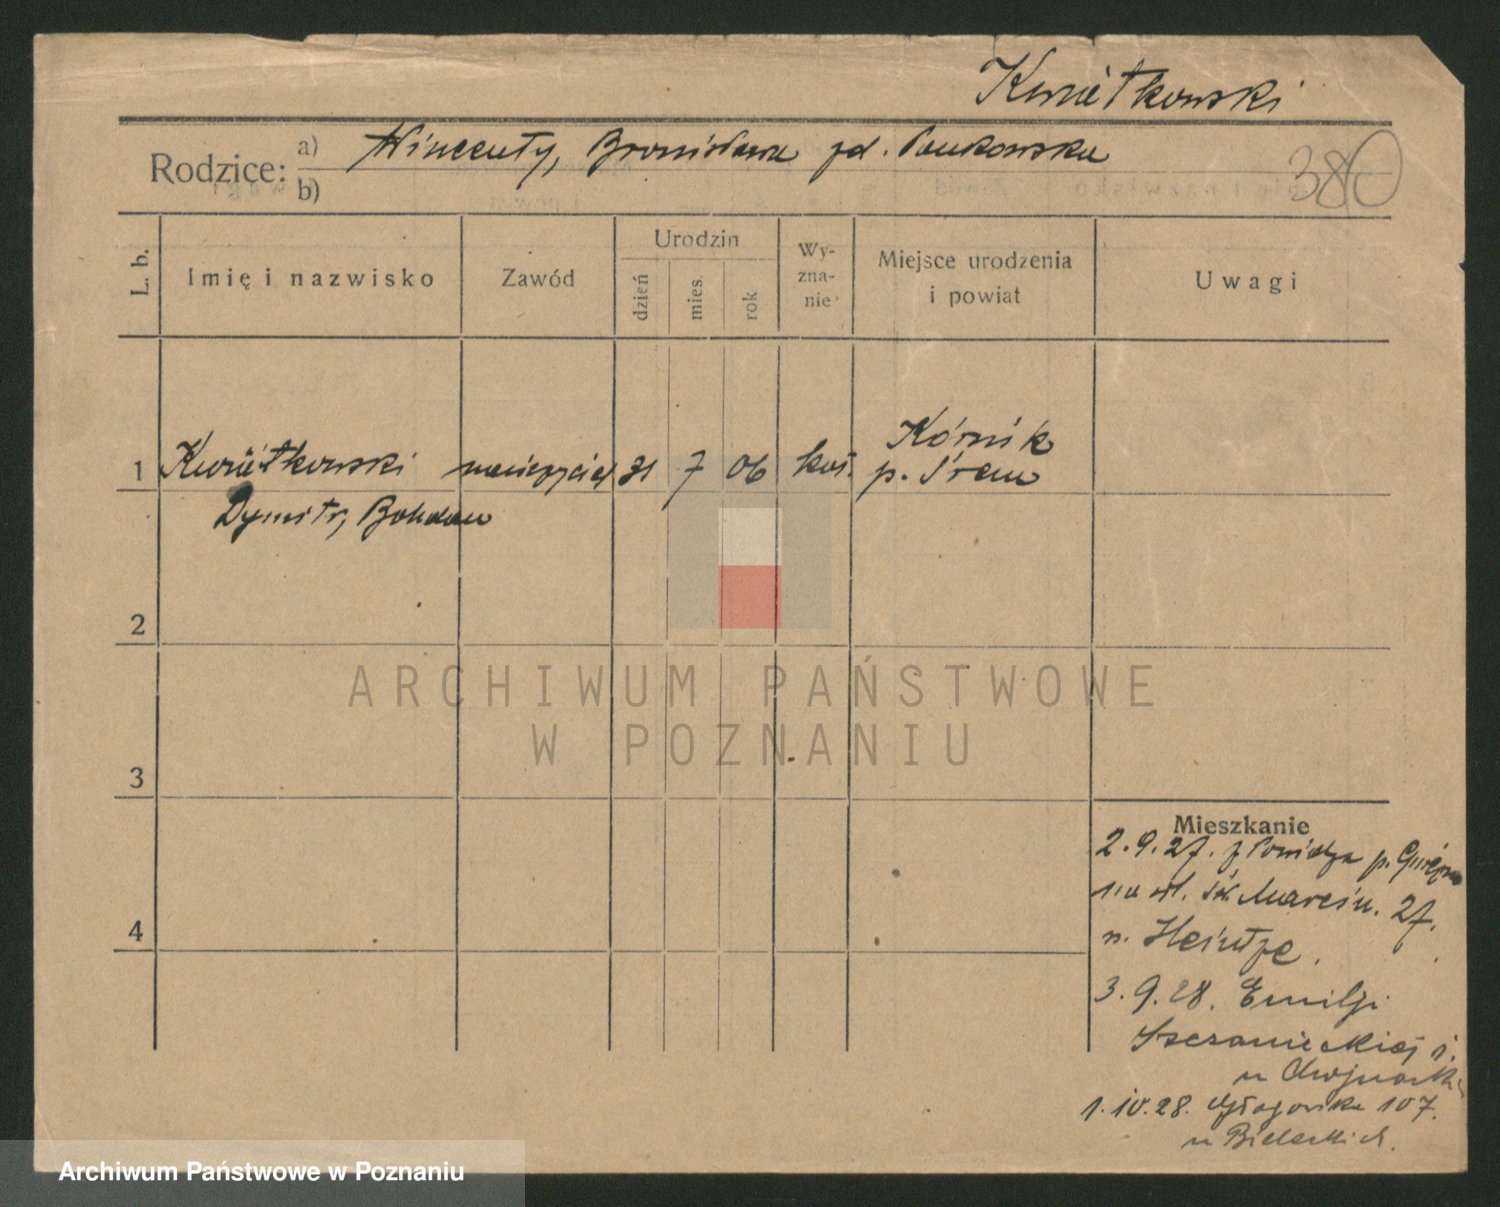 Kwiatkowski
Rodzice: a) Wincenty, Bronisława zd. Pankowska
b)
380
L. b.
Imię i nazwisko
Zawód
Urodzin
dzień
mies.
rok
Wy-
zna-
nie
Miejsce urodzenia
i powiat
Uwagi
1 Kwiatkowski nauczyciel 31 7 06 kat. Kórnik
p. Śrem
Dymitr, Bohdan
2
ARCHIWUM PAŃSTWOWE
W POZNANIU
3
Mieszkanie
2.9.27. z Powidza p.
na ul. św. Marcin. 27.
u. Heintze.
3.9.28. Emilji
Sczanieckiej
u
1.IV.28. Głogowska 107.
u
4
Archiwum Państwowe w Poznaniu